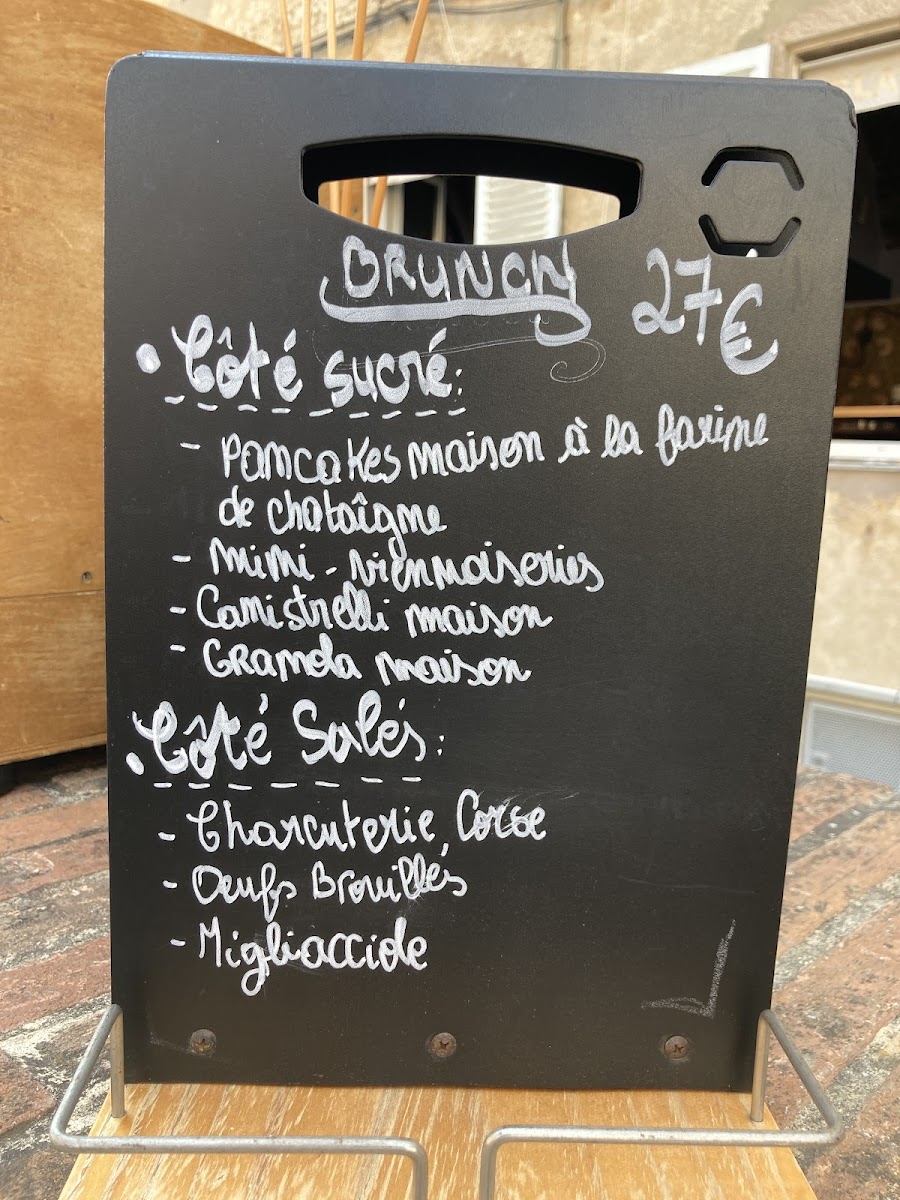 BRUNCH 27€
• Côté sucré:
- Pancakes maison à la farine
de chataîgne
- mimi-viennoiseries
- Canistrelli maison
- GRANOLA maison
• Côté Salés:
- Charcuterie Corse
- Oeufs Brouillés
- Migliacciole